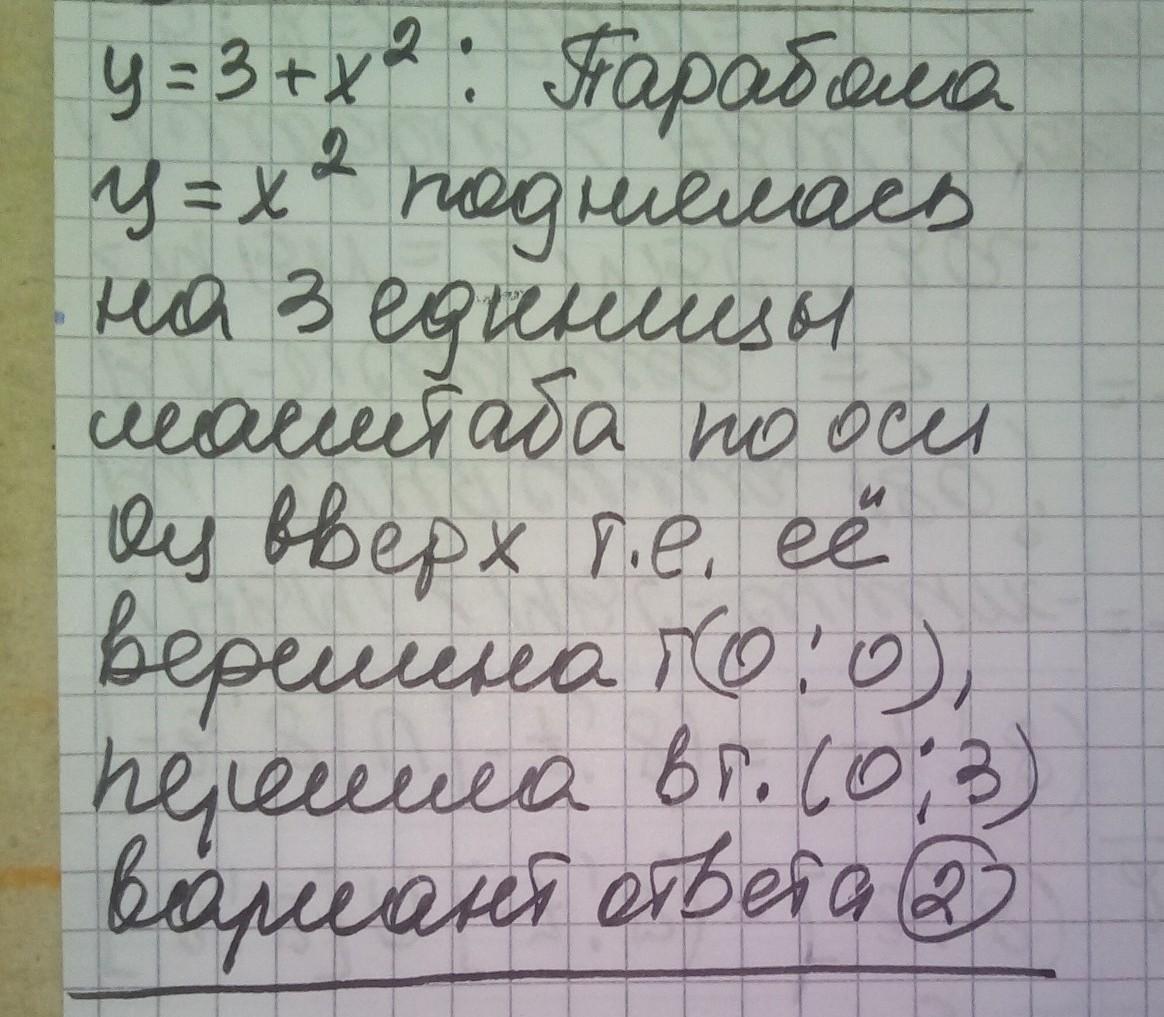 y = 3 + x² : Парабола
y = x² поднялась
на 3 единицы
масштаба по оси
Оу вверх т.е. её
вершина т(0 ; 0),
перешла в т. (0 ; 3)
вариант ответа 2